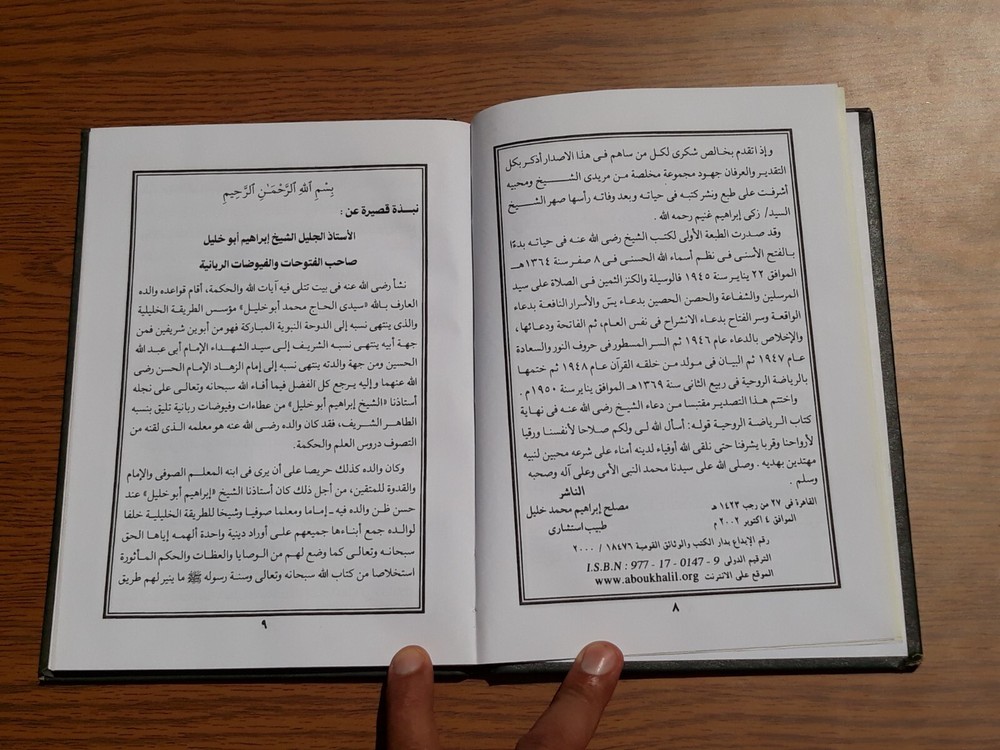 وإذ اتقدم بخالص شكرى لكل من ساهم فى هذا الاصدار أذكر بكل
التقدير والعرفان جهود مجموعة مخلصة من مريدى الشيخ ومحبيه
أشرفت على طبع ونشر كتبه فى حياته وبعد وفاته رأسها صهر الشيخ
السيد/ زكى إبراهيم غنيم رحمه الله .
وقد صدرت الطبعة الأولى لكتب الشيخ رضى الله عنه فى حياته بدءًا
بالفتح الأسنى فى نظم أسماء الله الحسنى فى ٨ صفر سنة ١٣٦٤هـ
الموافق ٢٢ يناير سنة ١٩٤٥ فالوسيلة والكنز الثمين فى الصلاة على سيد
المرسلين والشفاعة والحصن الحصين بدعاء يسّ والأسرار النافعة بدعاء
الواقعة وسر الفتاح بدعاء الانشراح فى نفس العام، ثم الفاتحة ودعائها،
والإخلاص بالدعاء عام ١٩٤٦ ثم السر المسطور فى حروف النور والسعادة
عام ١٩٤٧ ثم البيان فى مولد من خلقه القرآن عام ١٩٤٨ ثم ختمها
بالرياضة الروحية فى ربيع الثانى سنة ١٣٦٩هـ الموافق يناير سنة ١٩٥٠م .
واختتم هذا التصدير مقتبسا من دعاء الشيخ رضى الله عنه فى نهاية
كتاب الرياضة الروحية قوله: أسأل الله لى ولكم صلاحا لأنفسنا ورقيا
لأرواحنا وقربا يشرفنا حتى نلقى الله أوفياء لدينه أمناء على شرعه محبين لنبيه
مهتدين بهديه . وصلى الله على سيدنا محمد النبى الأمى وعلى آله وصحبه
وسلم .
الناشر
القاهرة فى ٢٧ من رجب ١٤٢٣ هـ
مصلح إبراهيم محمد خليل
الموافق ٤ أكتوبر ٢٠٠٢ م
طبيب استشارى
رقم الإيداع بدار الكتب والوثائق القومية ١٨٤٧٦ / ٢٠٠٠
الترقيم الدولى I.S.B.N : 977 - 17 - 0147 - 9
الموقع على الانترنت www.aboukhalil.org
٨
بِسْمِ ٱللَّهِ ٱلرَّحْمَـٰنِ ٱلرَّحِيمِ
نبذة قصيرة عن :
الأستاذ الجليل الشيخ إبراهيم أبو خليل
صاحب الفتوحات والفيوضات الربانية
نشأ رضى الله عنه في بيت تتلى فيه آيات الله والحكمة، أقام قواعده والده
العارف بالله «سيدى الحاج محمد أبوخليل» مؤسس الطريقة الخليلية
والذى ينتهى نسبه إلى الدوحة النبوية المباركة فهو من أبوين شريفين فمن
جهة أبيه ينتهى نسبه الشريف إلى سيد الشهداء الإمام أبى عبد الله
الحسين ومن جهة والدته ينتهى نسبه إلى إمام الزهاد الإمام الحسن رضى
الله عنهما وإليه يرجع كل الفضل فيما أفاء الله سبحانه وتعالى على نجله
أستاذنا «الشيخ إبراهيم أبو خليل» من عطاءات وفيوضات ربانية تليق بنسبه
الطاهر الشريف، فقد كان والده رضى الله عنه هو معلمه الذى لقنه من
التصوف دروس العلم والحكمة.
وكان والده كذلك حريصا على أن يرى فى ابنه المعلم الصوفى والإمام
والقدوة للمتقين، من أجل ذلك كان أستاذنا الشيخ «إبراهيم أبو خليل» عند
حسن ظن والده فيه ـ إماما ومعلما صوفيا وشيخا للطريقة الخليلية خلفا
لوالده جمع أبناءها جميعهم على أوراد دينية واحدة ألهمه إياها الحق
سبحانه وتعالى كما وضع لهم من الوصايا والعظات والحكم المأثورة
استخلاصا من كتاب الله سبحانه وتعالى وسنة رسوله ﷺ ما ينير لهم طريق
٩